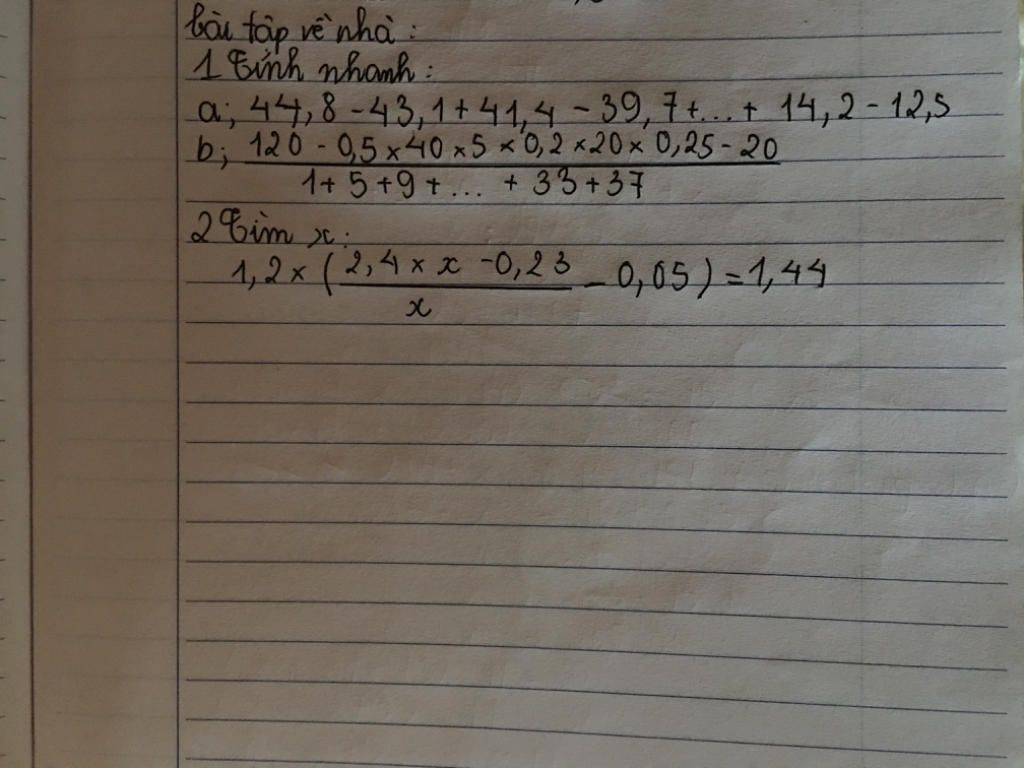 bài tập về nhà:
1 Tính nhanh:
a; 44,8 - 43,1 + 41,4 - 39,7 + ... + 14,2 - 12,5
b; 120 - 0,5 × 40 × 5 × 0,2 × 20 × 0,25 - 20
1 + 5 + 9 + ... + 33 + 37
2 Tìm x:
1,2 × ( 2,4 × x - 0,23 - 0,05 ) = 1,44
x